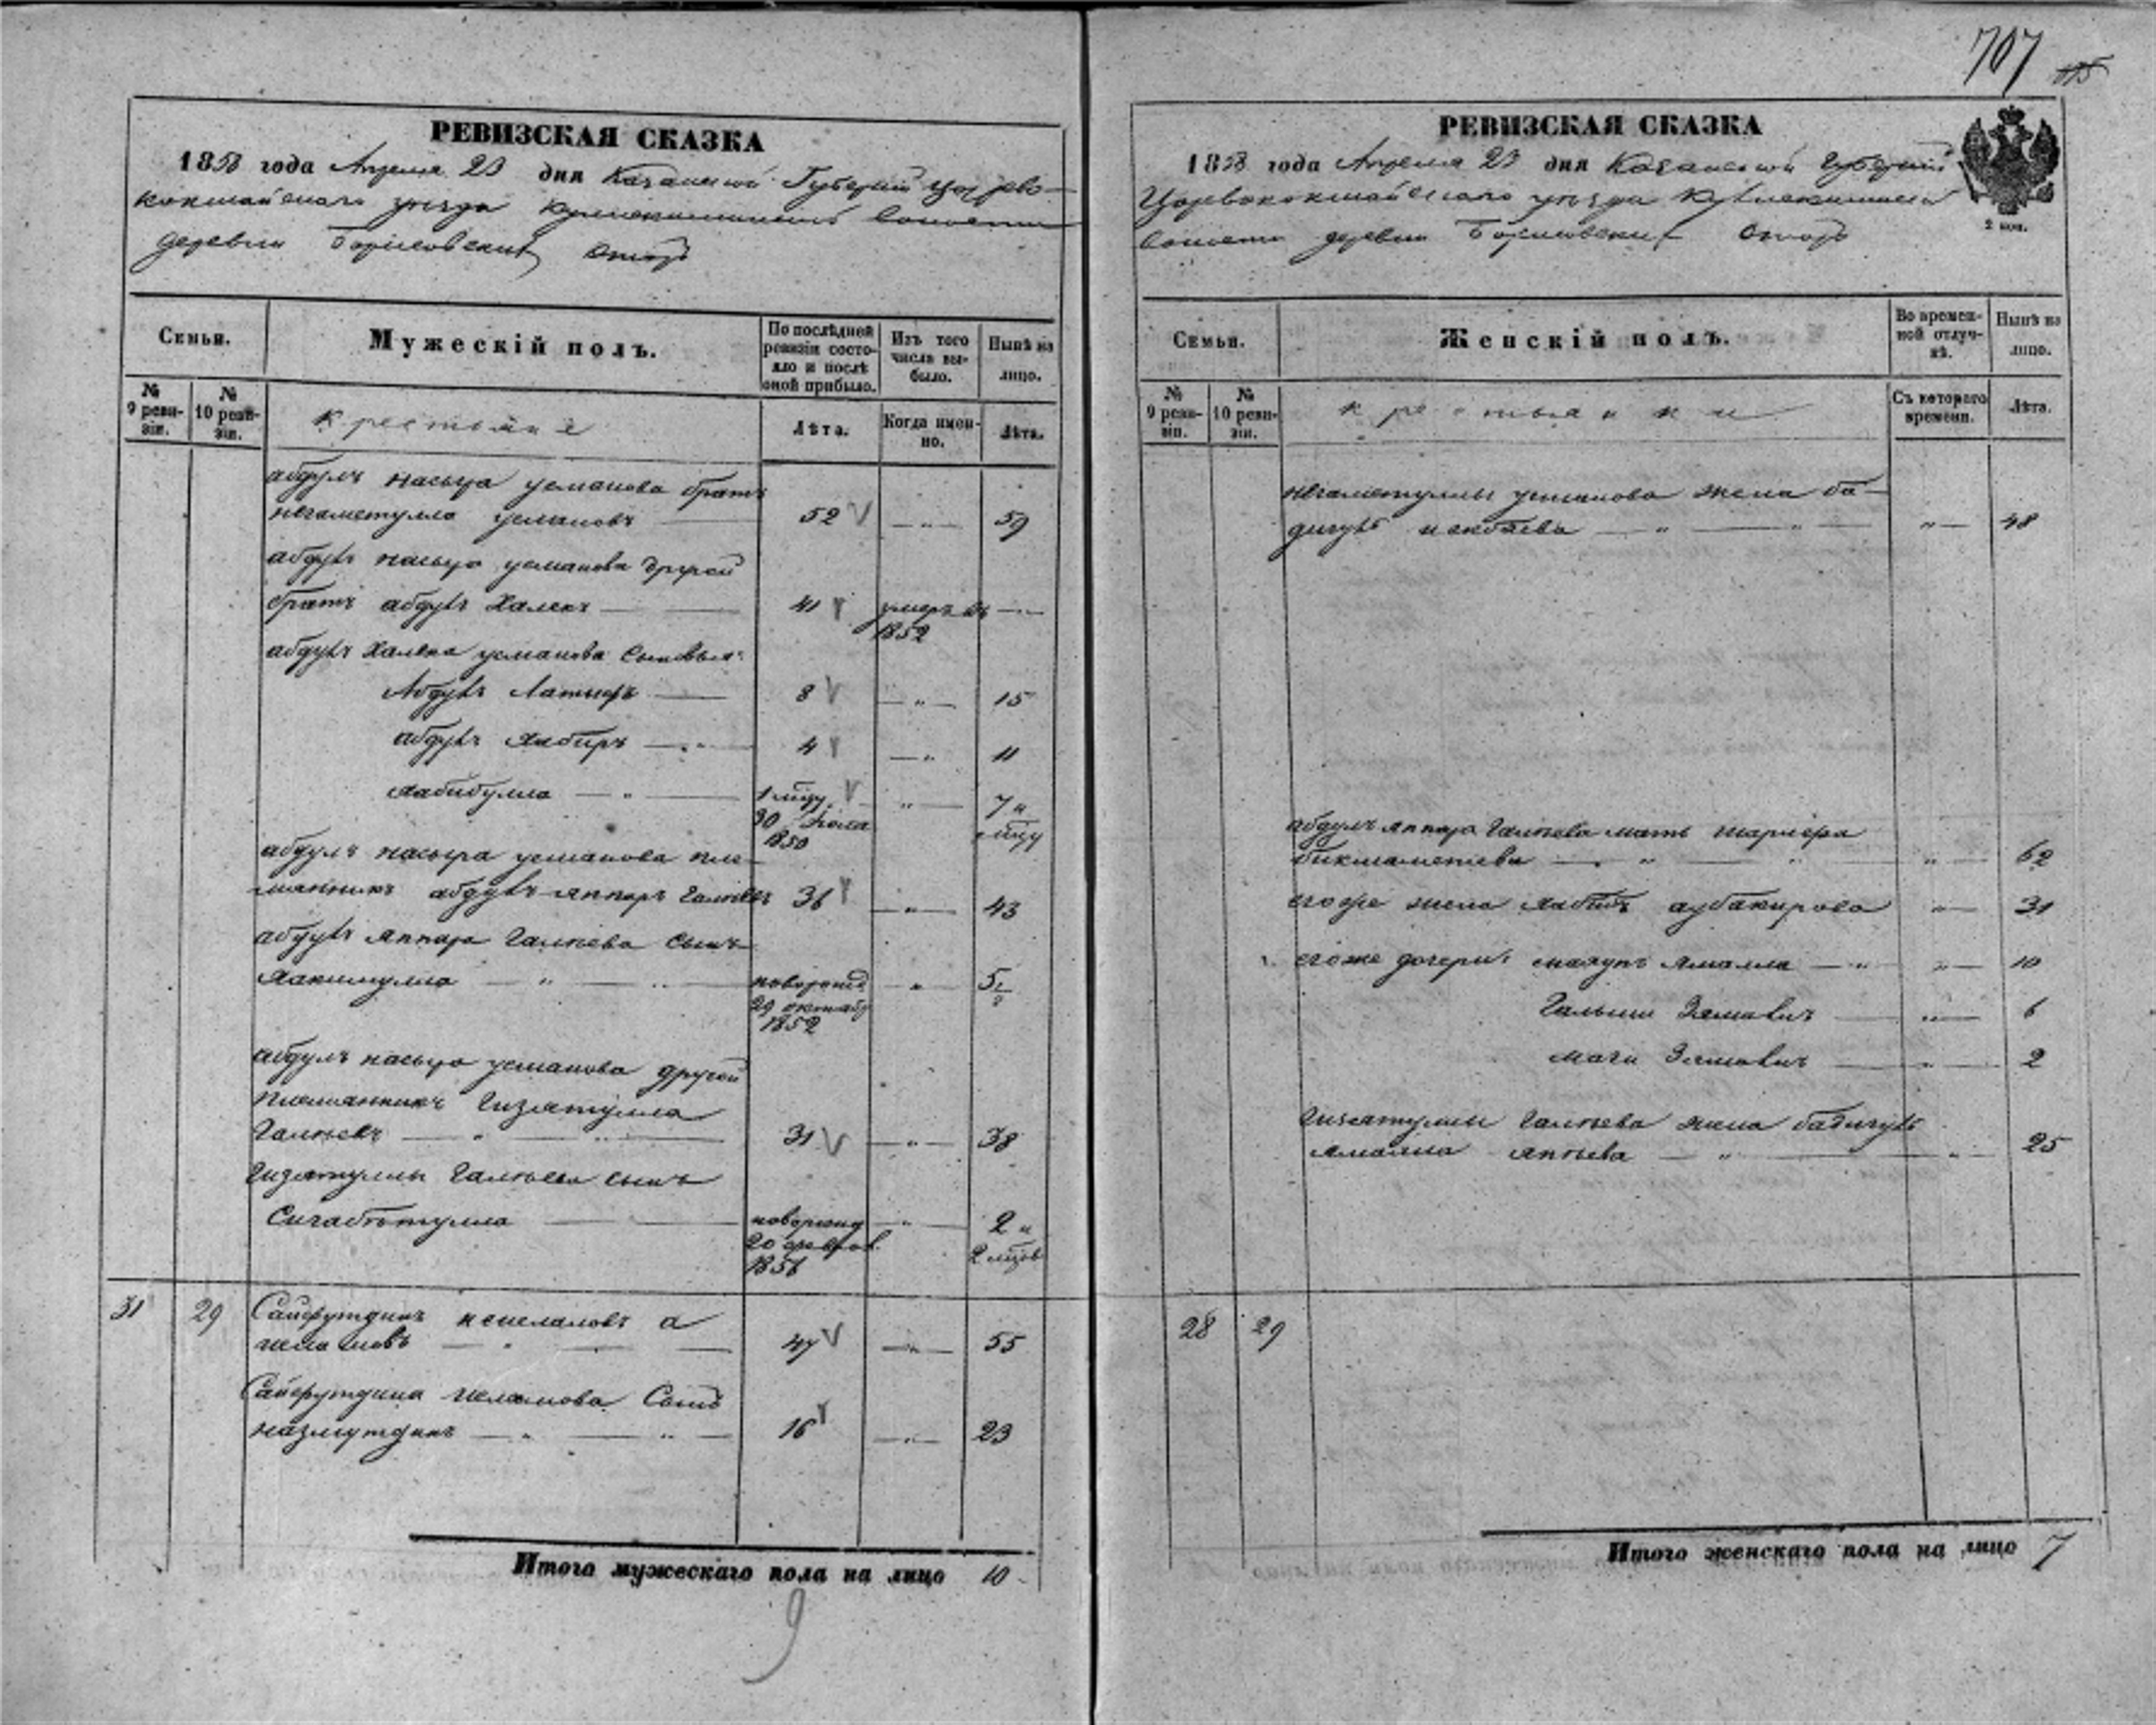 707
115
РЕВИЗСКАЯ СКАЗКА
1858 года Апреля 23 дня Казанской Губерніи Царево-
кокшайскаго уезда волости
деревни Борисовских Отар
Семьи.
Мужескій полъ.
По послѣдней ревизіи состо-
яло и послѣ
оной прибыло.
Изъ того
числа вы-
было.
Нынѣ на
лицо.
№
9 реви-
зіи.
№
10 реви-
зіи.
крестьяне
Лѣта.
Когда имен-
но.
Лѣта.
абдулъ насыра усманова братъ
негаметулла усмановъ 52 59
абдулъ насыра усманова другой
братъ абдулъ Халекъ 41 умеръ въ
1852
абдулъ Халека усманова сыновья:
Абдулъ Латыфъ 8 15
абдулъ Кабиръ 4 11
хабибулла 1 мцу 7 и
30 1850 мцу
абдулъ насыра усманова пле-
мянникъ абдулъ яппаръ Галіевъ 36 43
абдулъ яппара Галіева сынъ
хакимулла новорожд 5 1/2
29 октября
1852
абдулъ насыра усманова другой
племянникъ Гизятулла
Галіевъ 31 38
Гизятуллы Галіева сынъ
Сигабтулла новорожд 2 и
20 феврал. 2 мцов
1856
31 29 Сайфутдинъ а
47 55
Сайфутдина Сынъ
назмутдинъ 16 23
Итого мужескаго пола на лицо 10
9
РЕВИЗСКАЯ СКАЗКА
1858 года Апреля 23 дня Казанской Губерніи
Царевококшайскаго уезда
волости деревни Борисовских Отар
2 коп.
Семьи.
Женскій полъ.
Во времен-
ной отлуч-
кѣ.
Нынѣ на
лицо.
№
9 реви-
зіи.
№
10 реви-
зіи.
крестьянки
Съ котораго
времени.
Лѣта.
негаметуллы усманова жена ба-
дигулъ искбаева 48
абдулъ яппара Галіева мать
бикмаметева 62
его же жена аубакирова 31
его же дочери: ямалла 10
6
2
Гизятуллы Галіева жена бадигулъ
ямалла япіева 25
28 29
Итого женскаго пола на лицо 7